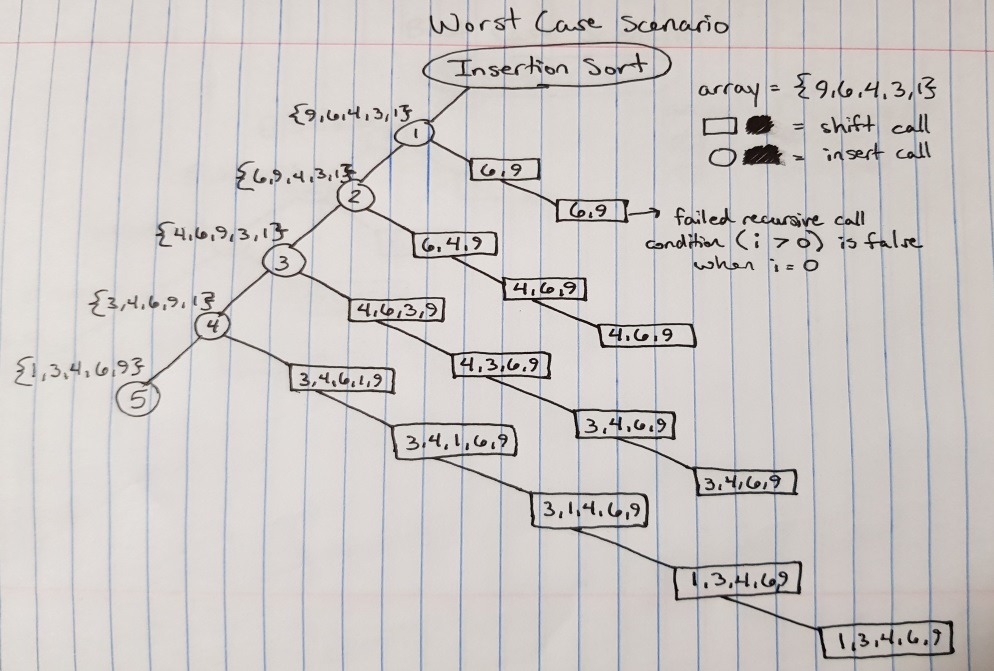 Worst Case Scenario
Insertion Sort
array = {9,6,4,3,1}
= shift call
= insert call
{9,6,4,3,1}
1
6,9
{6,9,4,3,1}
2
6,9 → failed recursive call
condition (i > 0) is false
when i = 0
{4,6,9,3,1}
6,4,9
3
4,6,9
{3,4,6,9,1}
4,6,3,9
4
4,6,9
{1,3,4,6,9}
4,3,6,9
3,4,6,1,9
5
3,4,6,9
3,4,1,6,9
3,4,6,9
3,1,4,6,9
1,3,4,6,9
1,3,4,6,9